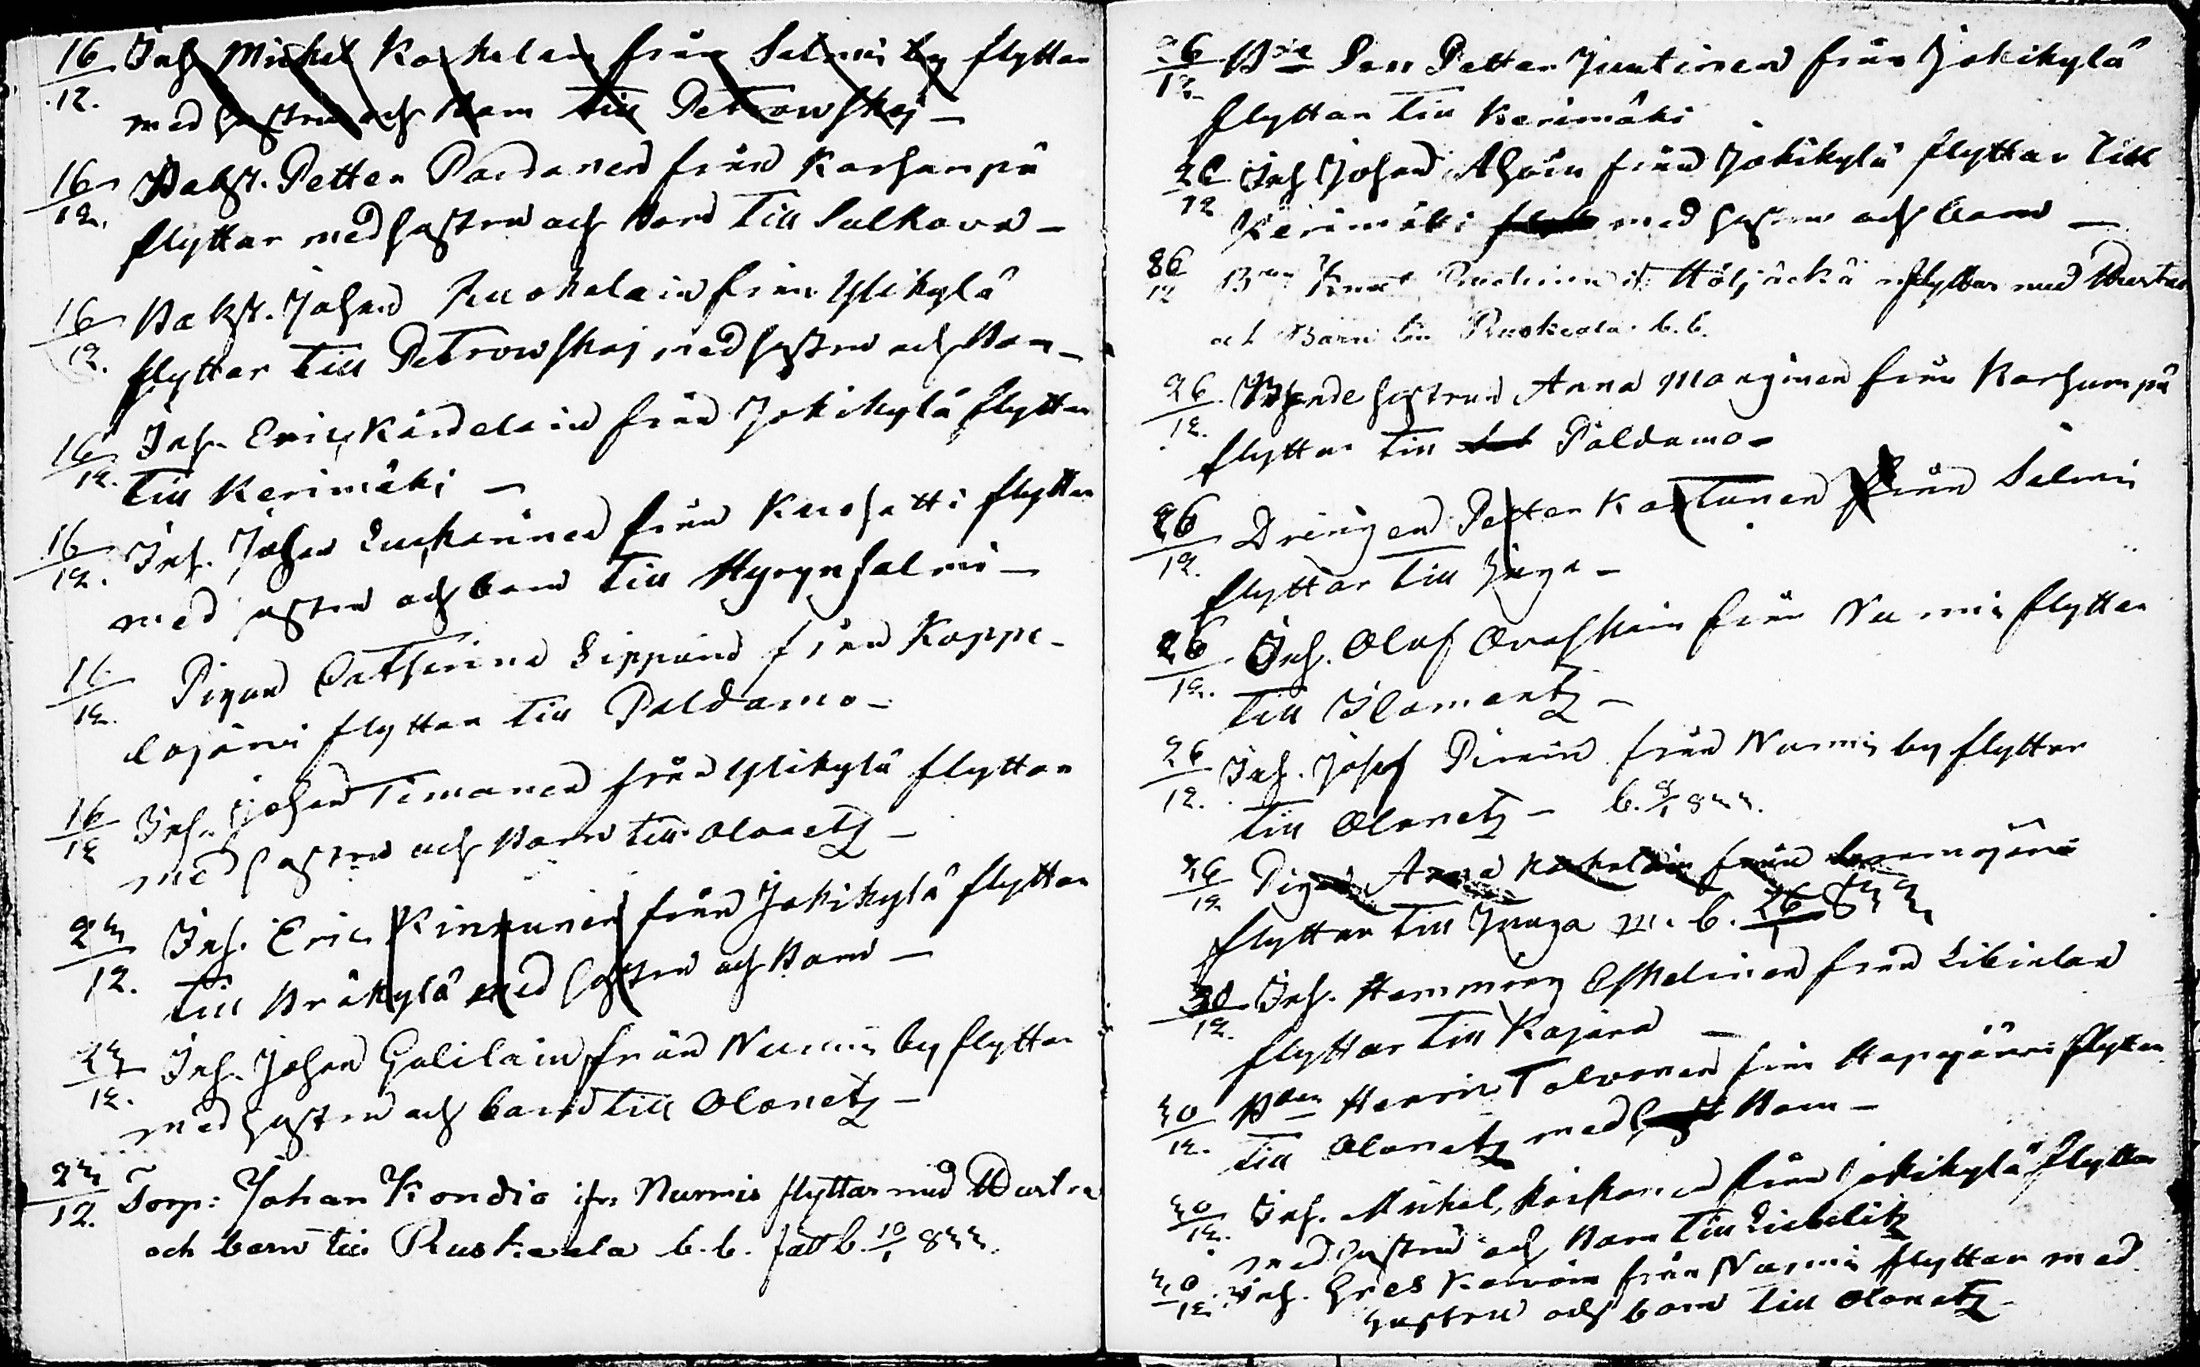 16/12. Inh. Michel Kaskelain från Salmis by flyttar
med hustru och Barn till Petrowskoj –
16/12. Bakst. Petter Pardanen från Karhunpä
flyttar med hustru och Barn till Sulkava –
16/12. Bakst. Johan Ruokolain från Ylikylä
flyttar till Petrowskoj med hustru och Barn –
16/12. Inh. Eric Kärdelain från Jokikylä flyttar
till Kerimäki –
16/12. Inh. Johan från Kuohatti flyttar
med hustru och barn till Hyrynsalmi –
16/12. Pigan Catharina Lippain från Koppe-
lojärvi flyttar till Paldamo –
16/12 Inh. Johan Timonen från Ylikylä flyttar
med hustru och Barn till Olonetz –
23/12. Inh. Eric Kinnunen från Jokikylä flyttar
till Bräkylä med hustru och Barn –
23/12. Inh. Johan Galilain från Nurmis by flyttar
med hustru och barn till Olonetz –
23/12. Torp: Johan Kondio ifr. Nurmis flyttar med Hustru
och barn till Ruskeala b. b. fått b. 10/1 833.
26/12 Petter Juutinen från Jokikylä
flyttar till Kerimäki
26/12 Inh Johan Ahoin från Jokikylä flyttar till
Kerimäki med hustru och barn –
26/12 Knut if. Höljäckä flyttar med Hustru
och Barn till Ruskeala. b. b.
26/12. hustrun Anna Manginen från Karhunpä
flyttar till Paldamo –
26/12. Drängen Petter Kortunen från Salmis
flyttar till Juga –
26/12. Inh. Olof Ovaskain från Nurmis flyttar
till Ilomantz –
26/12. Inh. Josef Pirnin från Nurmis by flyttar
till Olonetz – b. 9/1 833.
26/12 Pigan Anna från
flyttar till Juuga m. b. 26/1 833
30/12. Inh. Hemming Eskelinen från Libielax
flyttar till Kajana –
30/12. Bon Henric Tolvanen från Haapajärvi flyttar
till Olonetz med Barn –
30/12. Inh. Michel från Jokikylä flyttar
med hustru och Barn till Liebelitz
30/12. Inh. Gres Karvoin från Nurmis flyttar med
hustru och barn till Olonetz –